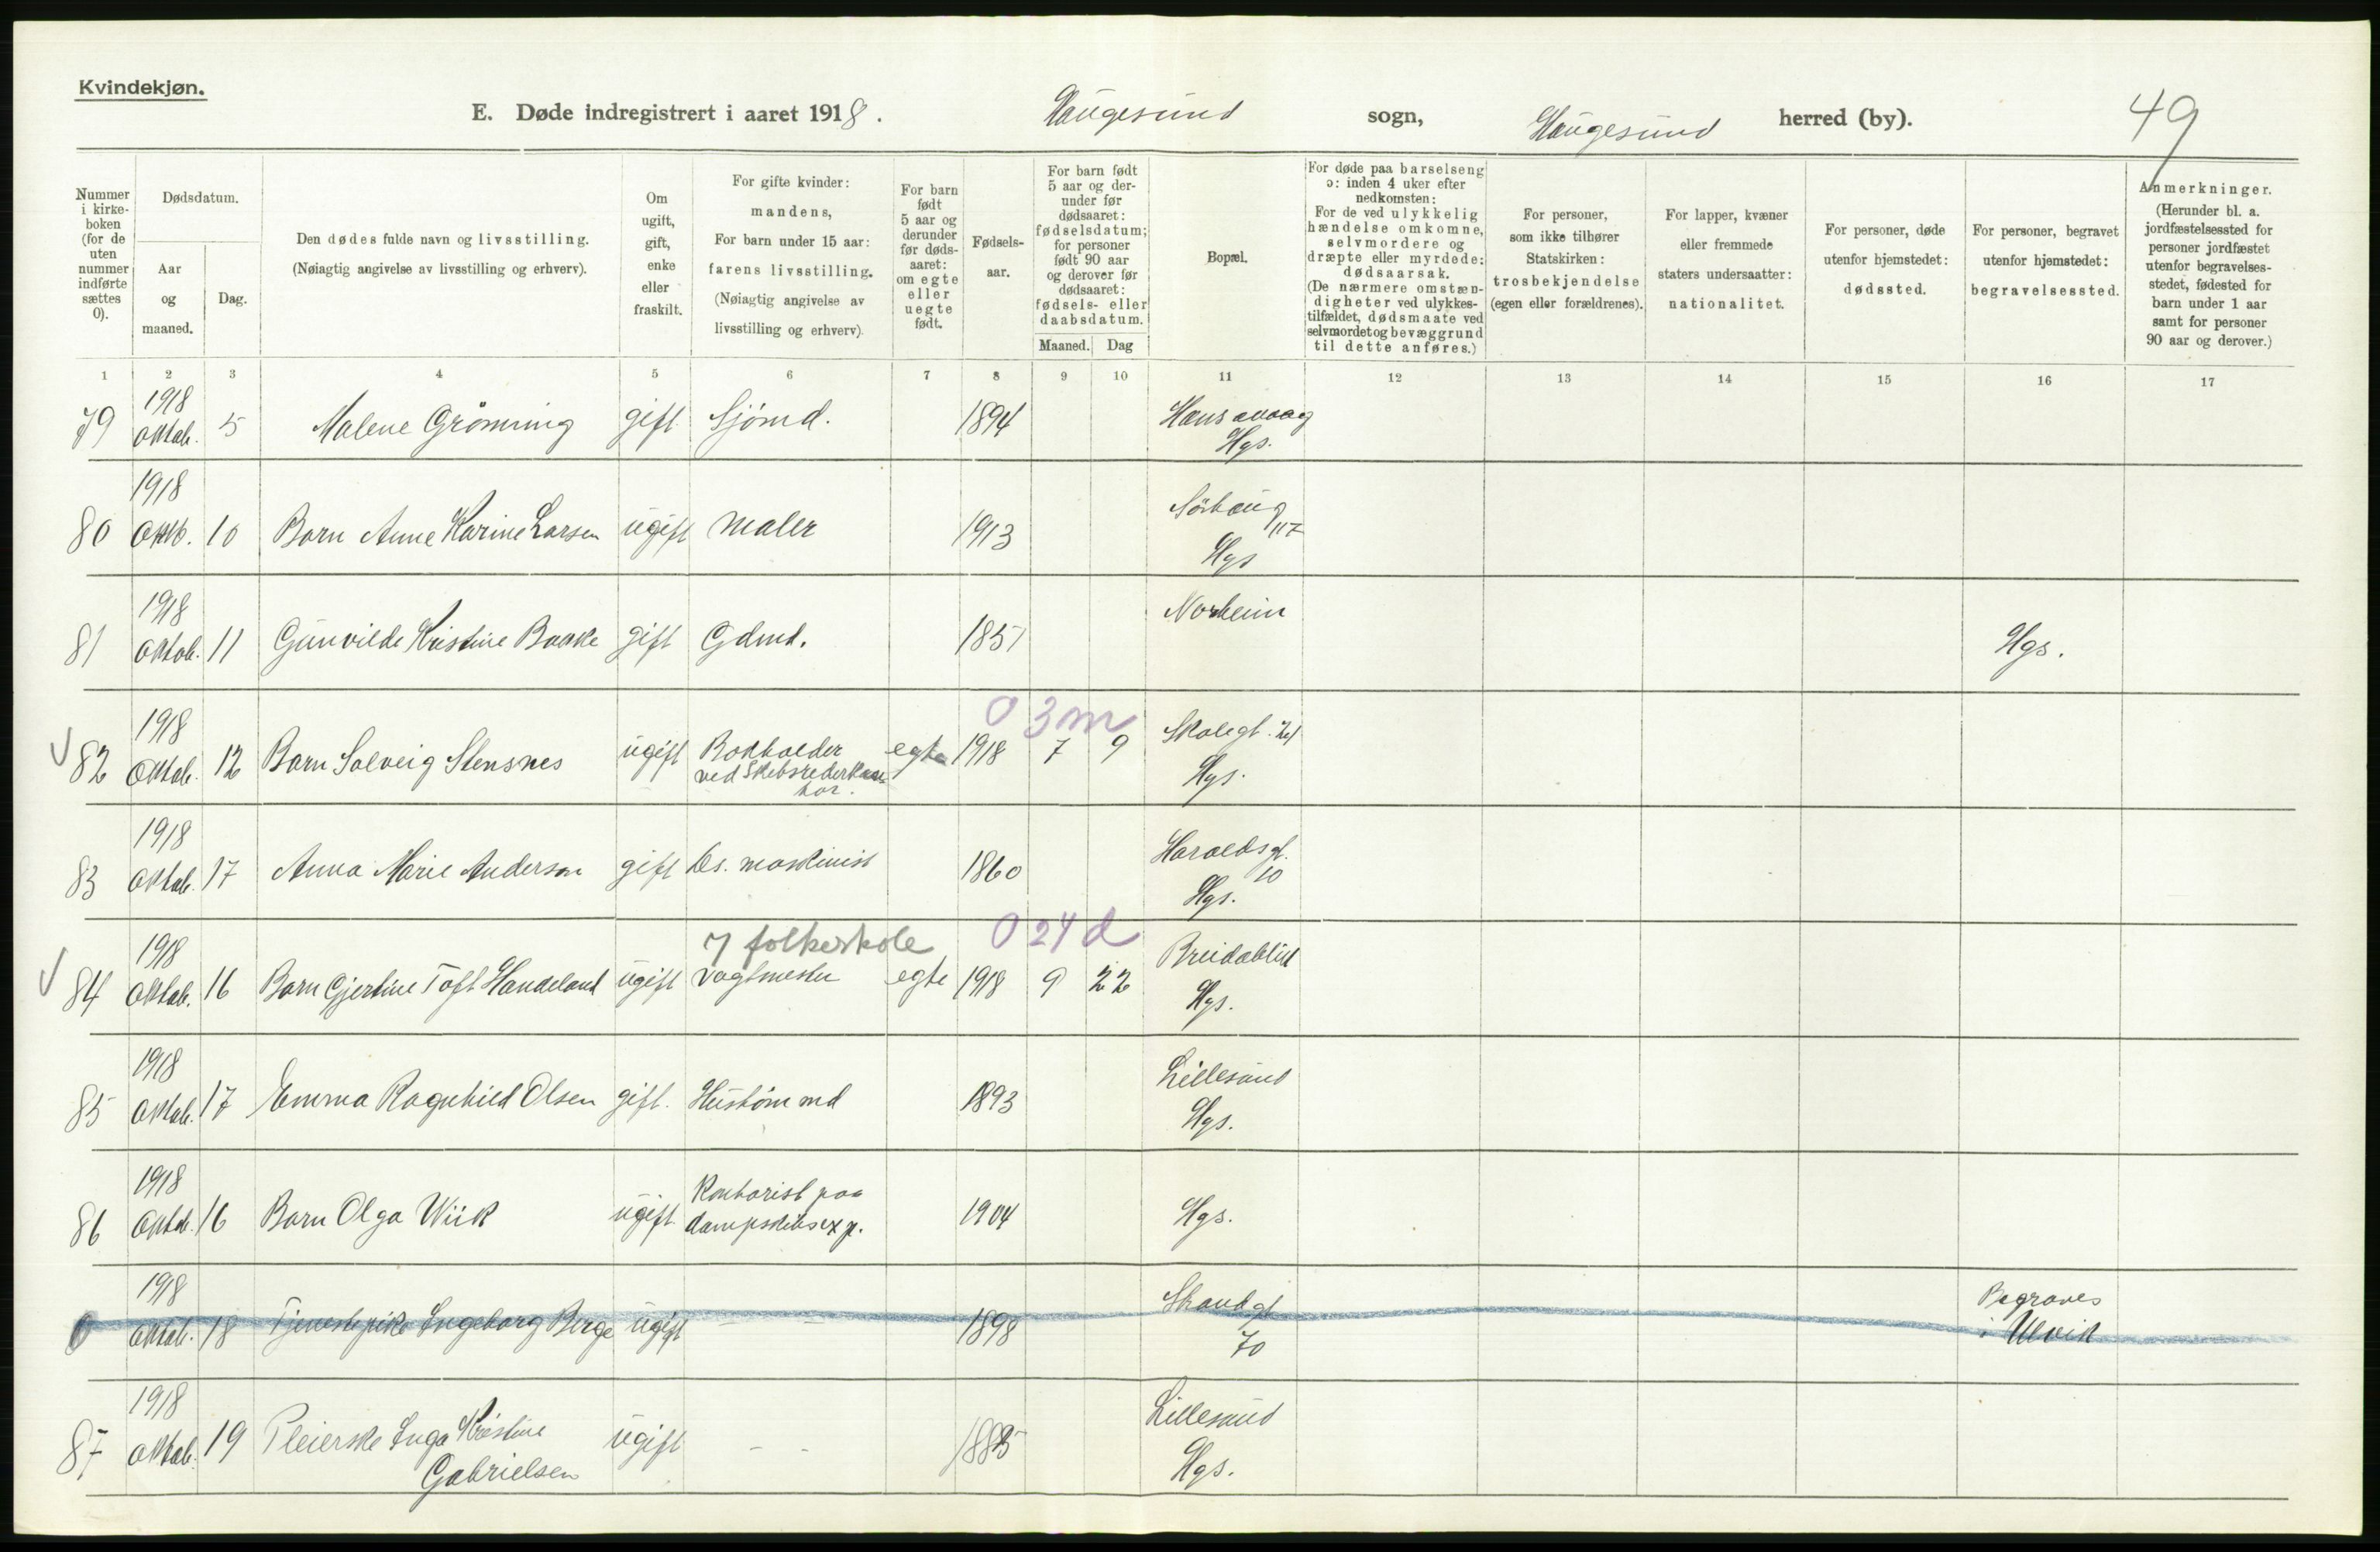 Kvindekjøn.
E. Døde indregistrert i aaret 1918. Haugesund sogn, Haugesund herred (by). 49
Nummer i kirke-boken (for de uten nummer indførte sættes 0).
Dødsdatum.
Aar og maaned.
Dag.
Den dødes fulde navn og livsstilling.
(Nøiagtig angivelse av livsstilling og erhverv).
Om ugift, gift, enke eller fraskilt.
For gifte kvinder: mandens,
For barn under 15 aar: farens livsstilling.
(Nøiagtig angivelse av livsstilling og erhverv).
For barn født 5 aar og derunder før døds-aaret: om egte eller uegte født.
Fødsels-aar.
For barn født 5 aar og der-under før dødsaaret: fødselsdatum; for personer født 90 aar og derover før dødsaaret: fødsels- eller daabsdatum.
Maaned. Dag
Bopæl.
For døde paa barselseng ɔ: inden 4 uker efter nedkomsten:
For de ved ulykkelig hændelse omkomne, selvmordere og dræpte eller myrdede: dødsaarsak.
(De nærmere omstæn-digheter ved ulykkes-tilfældet, dødsmaate ved selvmordet og bevæggrund til dette anføres.)
For personer, som ikke tilhører Statskirken: trosbekjendelse (egen eller forældrenes).
For lapper, kvæner eller fremmede staters undersaatter: nationalitet.
For personer, døde utenfor hjemstedet: dødssted.
For personer, begravet utenfor hjemstedet: begravelsessted.
Anmerkninger.
(Herunder bl. a. jordfæstelsessted for personer jordfæstet utenfor begravelses-stedet, fødested for barn under 1 aar samt for personer 90 aar og derover.)
1 2 3 4 5 6 7 8 9 10 11 12 13 14 15 16 17
1918
79 Oktob. 5 Malene Grönning gift Sjömd. 1894 Hansavaag
Hgs.
1918
80 Oktb. 10 Barn Anne Karine Larsen ugift Maler 1913 Sörhaug 117
Hgs
1918
81 Oktob. 11 Gunvilde Kristine Baake gift Gdmd. 1851 Norheim Hgs.
0 3m
1918
V 82 Oktob. 12 Barn Solveig Stensnes ugift Bokholder egte 1918 7 9 Skolegt. 21
ved Skibsrederkon
tor. Hgs.
1918
83 Oktob. 17 Anna Marie Anderson gift Ds. maskinist 1860 Haraldsgt. 10
Hgs.
7 folkeskole 0 24 d
1918
V 84 Oktob. 16 Barn Gjertine Toft Handeland ugift Vagtmester egte 1918 9 22 Breidablik
Hgs.
1918
85 Oktob. 17 Emma Ragnhild Olsen gift. Hustömmd 1893 Lillesund
Hgs.
1918
86 Oktob. 16 Barn Olga Wiik ugift Kontorist paa
dampskibsexp. 1904 Hgs.
1918
0 Oktob. 18 Tjenestepike Ingeborg Berge ugift – – 1898 Strandgt
70 Begraves
i Ulvik
1918
87 Oktob. 19 Pleierske Inga Kristine
Gabrielsen ugift – – 1885 Lillesund
Hgs.